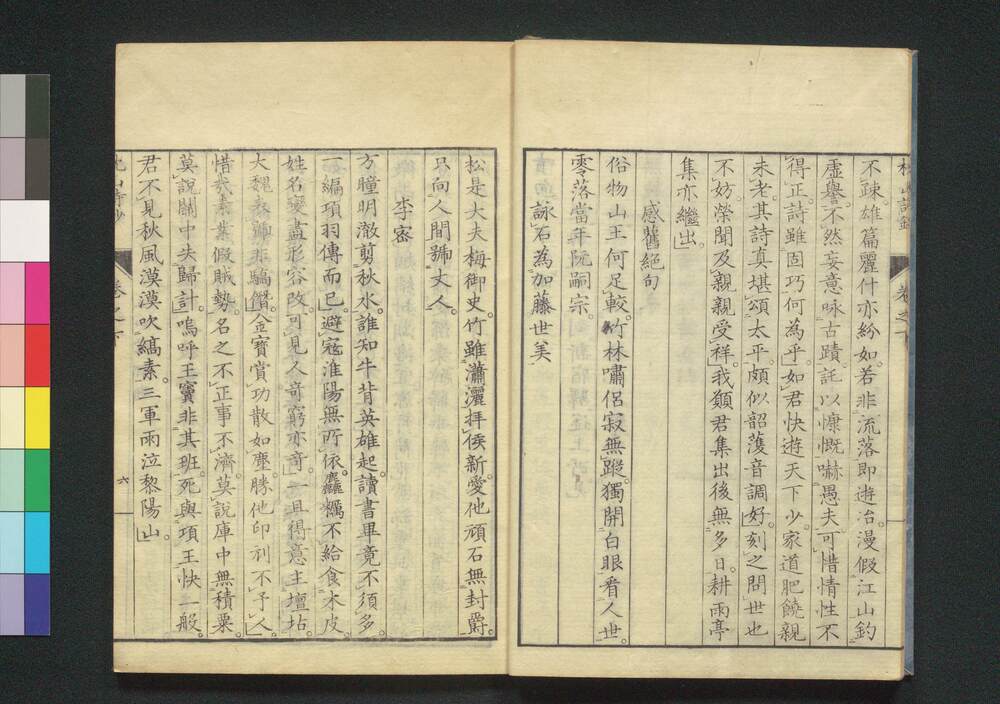 不疎。雄篇麗什亦紛如。若非流落即遊冶。漫假江山釣
虛譽。不然妄意咏古蹟。託以慷慨嚇愚夫。可惜情性不
得正。詩雖固巧何為乎。如君快遊天下少。家道肥饒親
未老。其詩真堪頌太平。頗似韶濩音調好。刻之問世也
不妨。榮聞及親親受祥。我願君集出後無多日。耕雨亭
集亦繼出。
感舊絕句
俗物山王何足較。竹林嘯侶寂無蹤。獨開白眼看人世。
零落當年阮嗣宗。
詠石為加藤世美
松是大夫梅御史。竹雖瀟灑拜侯新。愛他頑石無封爵。
只向人間號丈人。
李密
方瞳明澈剪秋水。誰知牛背英雄起。讀書畢竟不須多。
一編項羽傳而已。避寇淮陽無所依。麤糲不給食木皮。
姓名變盡形容改。可見人奇窮亦奇。一旦得意主壇坫。
大魏
非驕僭。金寶賞功散如塵。勝他印刓不予人。
惜哉
業假賊勢。名之不正事不濟。莫說庫中無積粟。
莫說關中失歸計。嗚呼王竇非其班。死與項王快一般。
君不見秋風漠漠吹縞素。三軍雨泣黎陽山。
卷之下
六